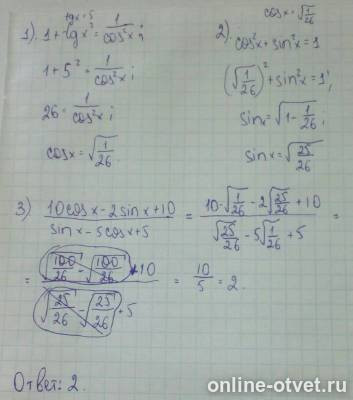 tgx = 5
1). 1 + tgx² = 1/cos²x ;
1 + 5² = 1/cos²x ;
26 = 1/cos²x ;
cosx = √(1/26).
cosx = √(1/26)
2)
cos²x + sin²x = 1
(√(1/26))² + sin²x = 1 ;
sinx = √(1 - 1/26) ;
sinx = √(25/26)
3) (10cosx - 2sinx + 10)/(sinx - 5cosx + 5) = (10·√(1/26) - 2√(25/26) + 10)/(√(25/26) - 5√(1/26) + 5) =
= (√(100/26) - √(100/26) + 10)/(√(25/26) - √(25/26) + 5) = 10/5 = 2.
Ответ: 2.
online-otvet.ru